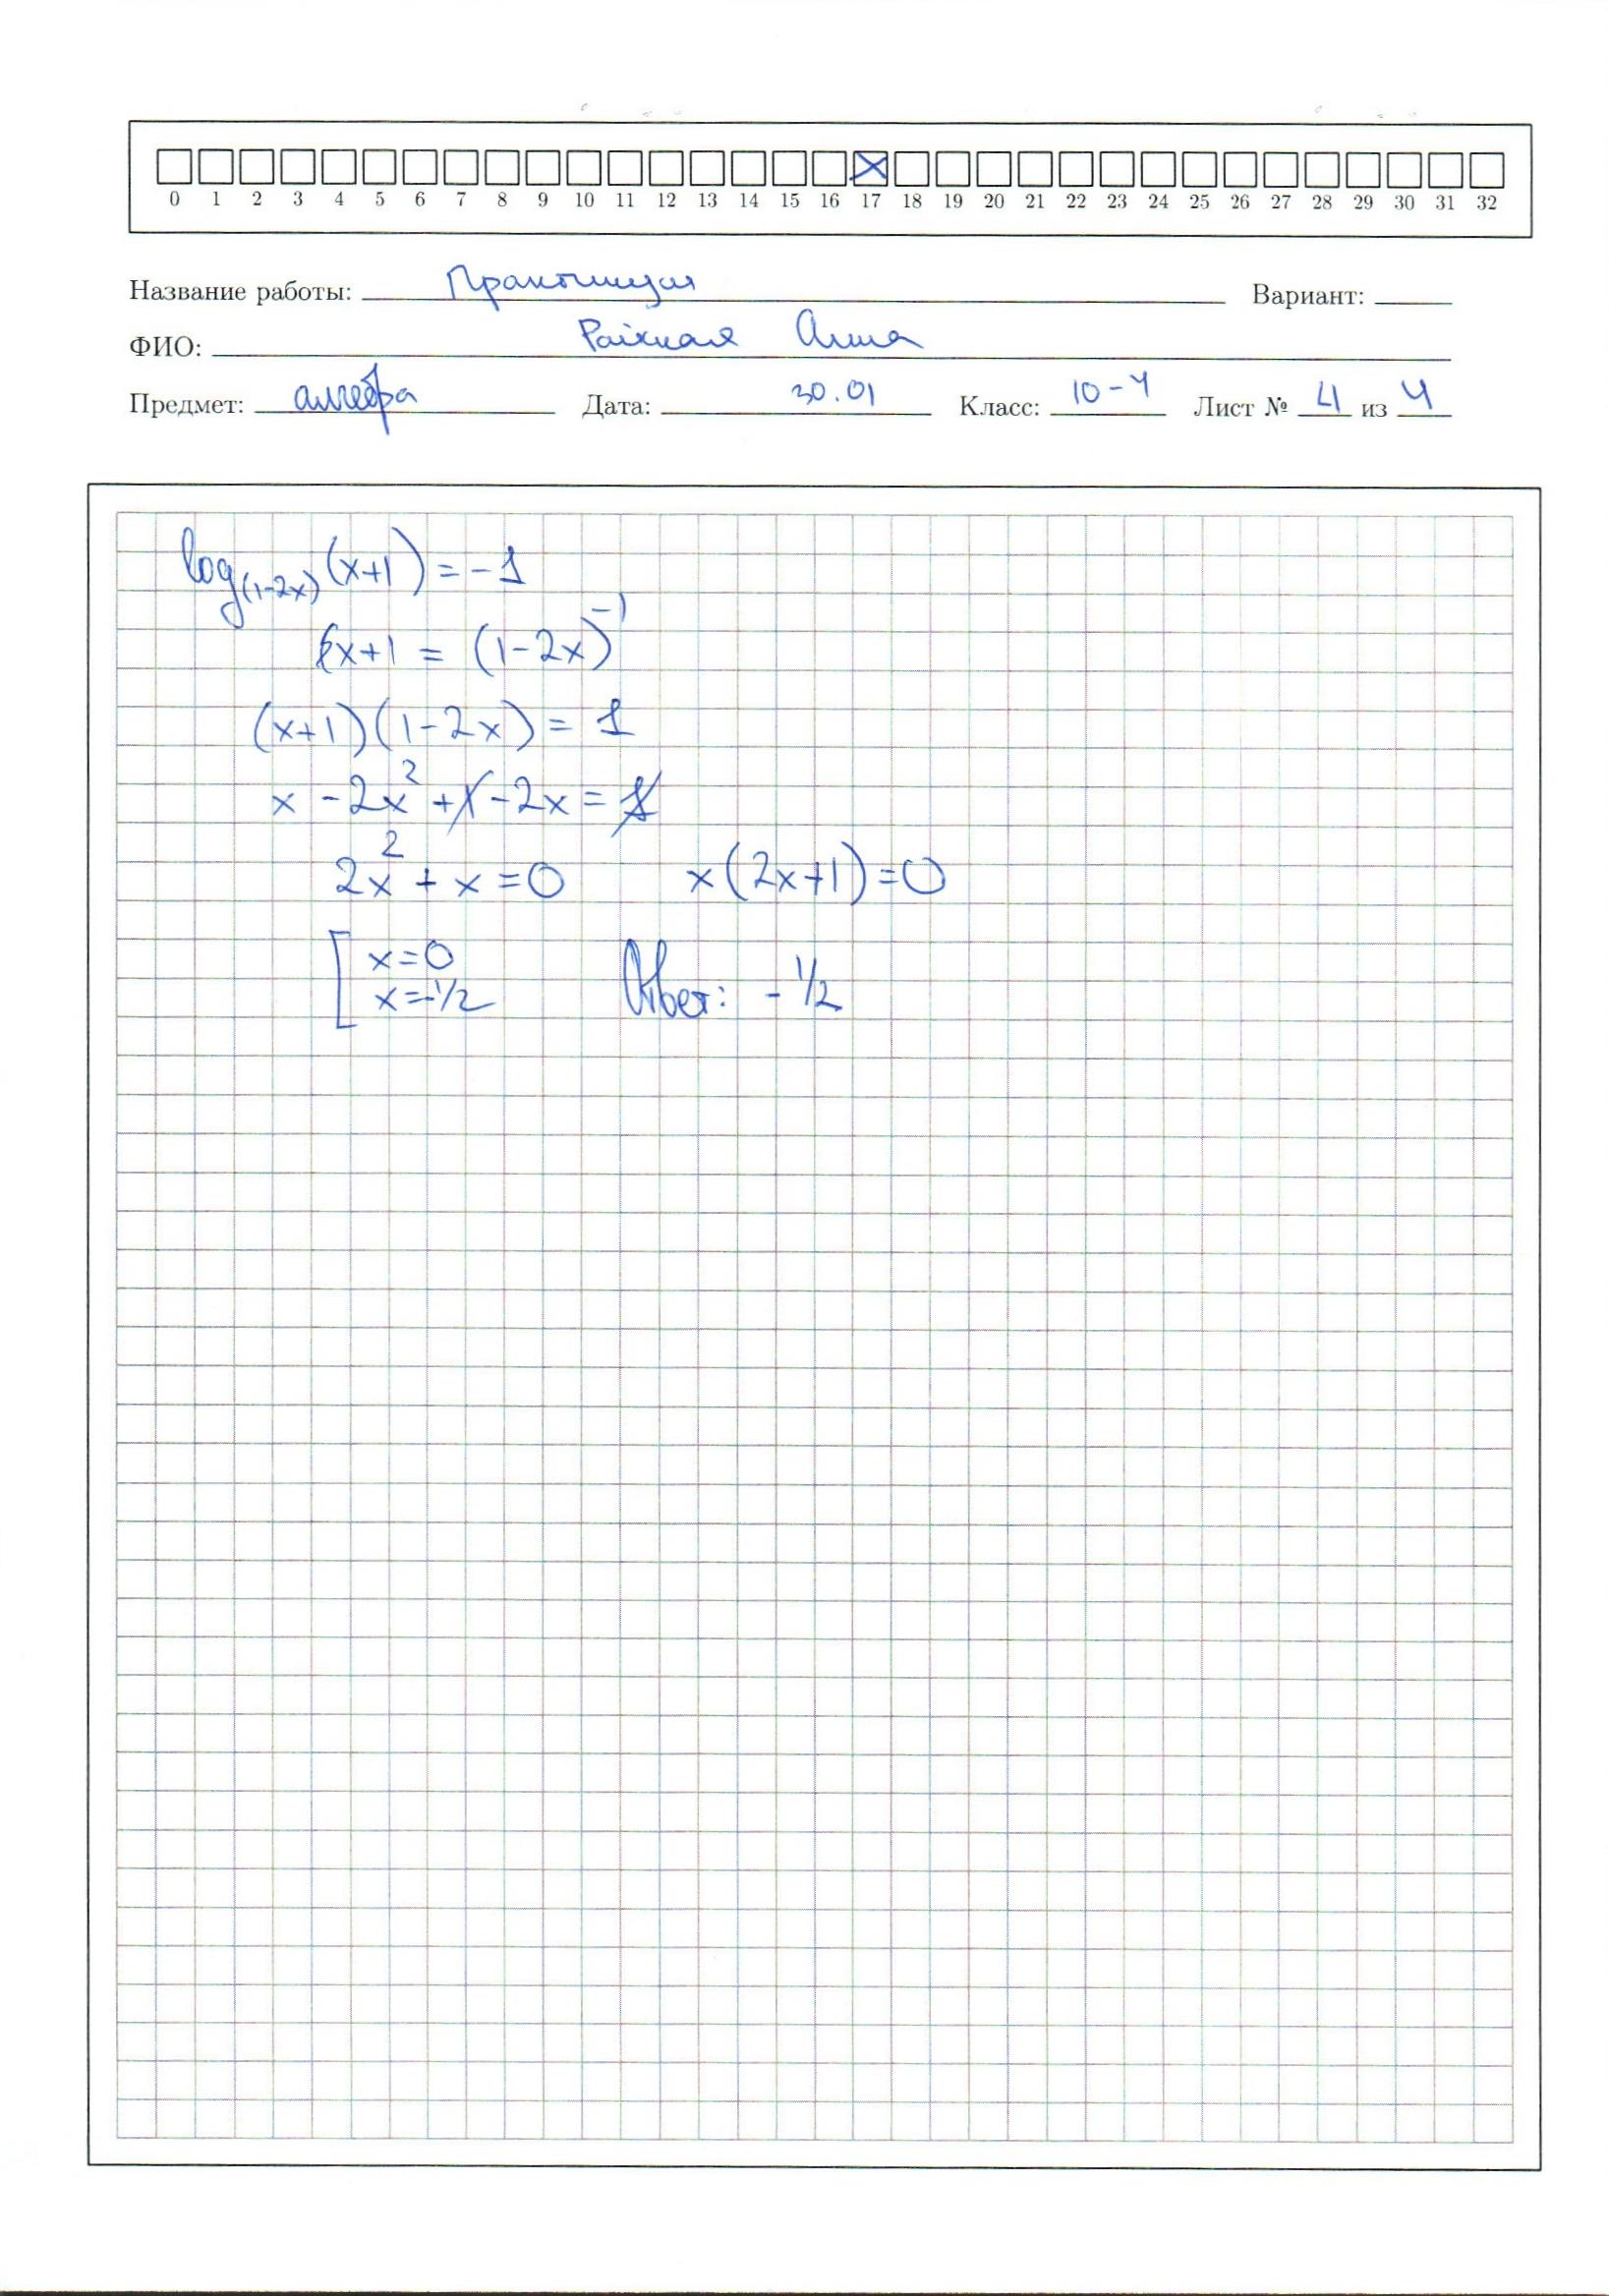 0 1 2 3 4 5 6 7 8 9 10 11 12 13 14 15 16 17 18 19 20 21 22 23 24 25 26 27 28 29 30 31 32
Название работы: Вариант:
ФИО: Анна
Предмет: алгебра Дата: 30.01 Класс: 10-4 Лист № 4 из 4
log₍₁₋₂ₓ₎(x+1) = -1
x+1 = (1-2x)⁻¹
(x+1)(1-2x) = 1
x - 2x² + 1 - 2x = 1
2x² + x = 0 x(2x+1)=0
[ x=0
x=-1/2 Ответ: - 1/2